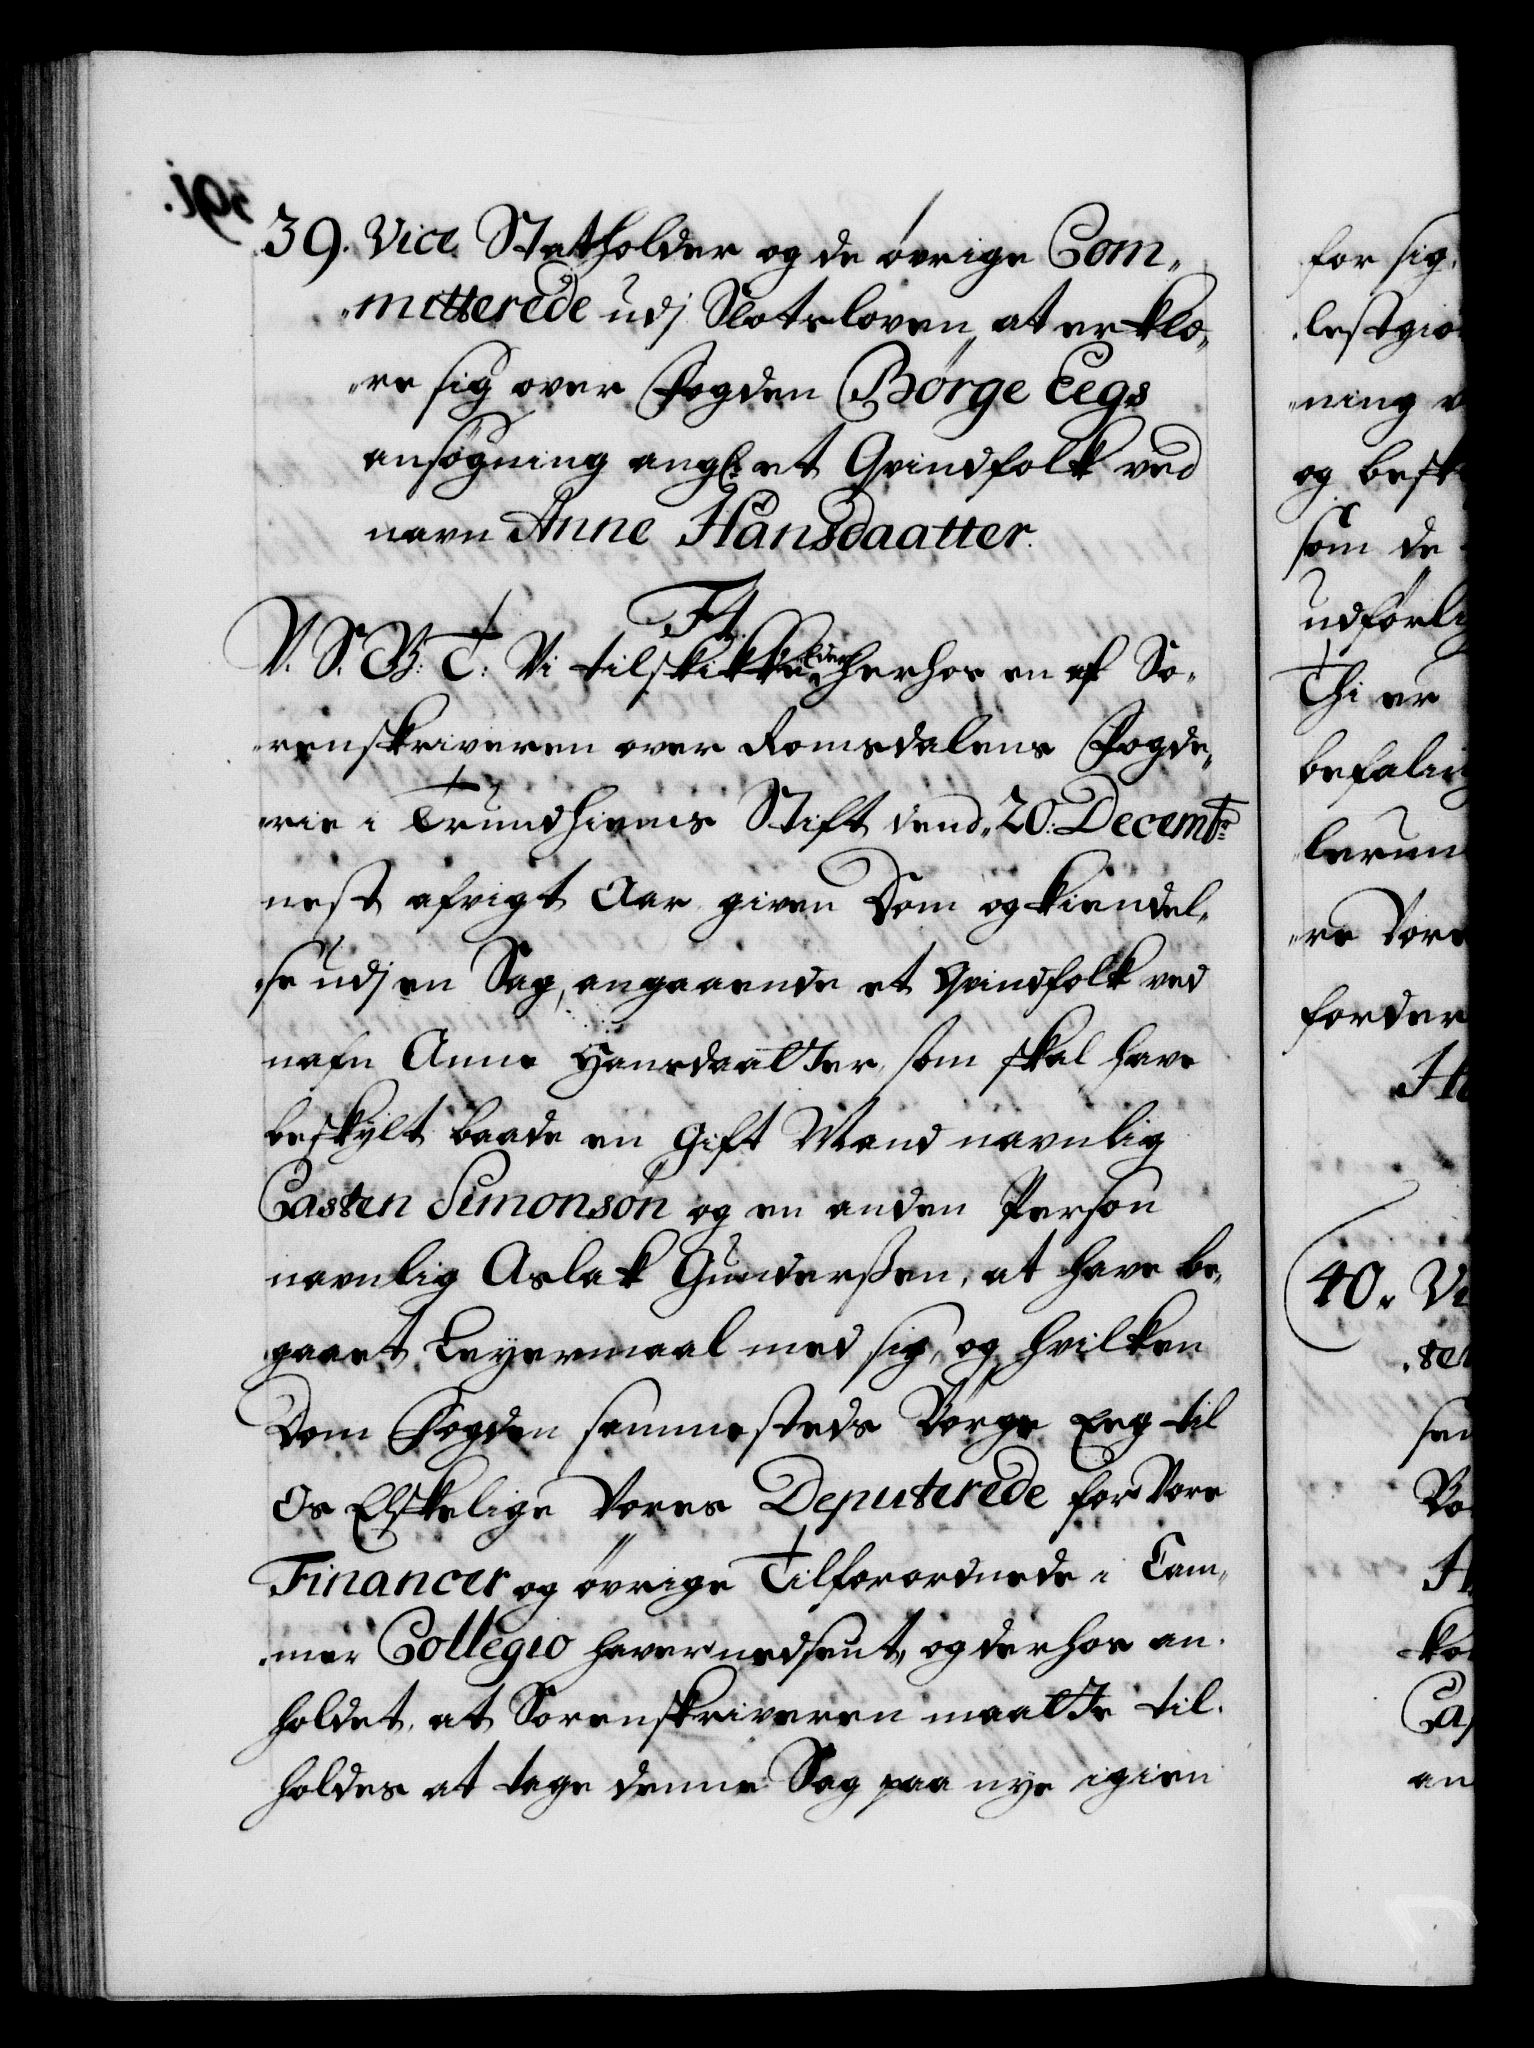 39. Vice Statholder og de øvrige Com„
„mitterede udj Slotsloven, at erklæ„
„re sig over Fogden Børge Eegs
ansøgning ang: et Qvindfolk ved
navn Anne Hansdaatter.
F4.
V. S. G. B. T: Vi tilskikke Eder herhos en af So„
„renskriveren over Romsdalens Fogde„
„rie i Trundhiems Stift dend 20: Decembr:
nest afvigt Aar given Dom og kiendel„
„se udj en Sag, angaaende et Qvindfolk ved
nafn Anne Hansdaatter, som skal have
beskylt baade en gift Mand navnlig
Casten Simonsøn og en anden Person
navnlig Aslak Gunderßen, at have be„
gaaet Leyermaal med sig, og hvilken
Dom Fogden sammesteds Børge Eeg til
Os Elskelige Vores Deputerede for Vore
Financer og øvrige Tilforordnede i Cam„
„mer Collegio haver nedsent, og derhos an„
holdet, at Sorenskriveren maatte til„
holdes at tage denne Sag paa nye igien
for sig,
og besk
som de
udførlig
Thi er
befaling
„re Vore
40. Vi